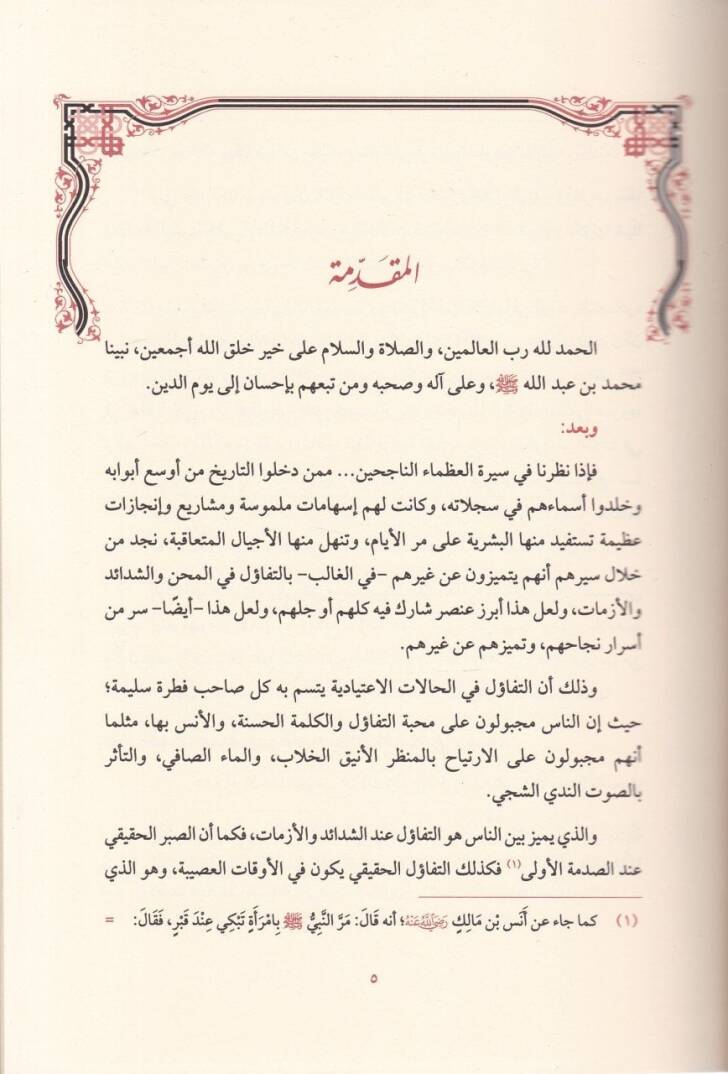 المقَدِّمة
الحمد لله رب العالمين، والصلاة والسلام على خير خلق الله أجمعين، نبينا
محمد بن عبد الله ﷺ، وعلى آله وصحبه ومن تبعهم بإحسان إلى يوم الدين.
وبعد:
فإذا نظرنا في سيرة العظماء الناجحين... ممن دخلوا التاريخ من أوسع أبوابه
وخلدوا أسماءهم في سجلاته، وكانت لهم إسهامات ملموسة ومشاريع وإنجازات
عظيمة تستفيد منها البشرية على مر الأيام، وتنهل منها الأجيال المتعاقبة، نجد من
خلال سيرهم أنهم يتميزون عن غيرهم –في الغالب– بالتفاؤل في المحن والشدائد
والأزمات، ولعل هذا أبرز عنصر شارك فيه كلهم أو جلهم، ولعل هذا –أيضًا– سر من
أسرار نجاحهم، وتميزهم عن غيرهم.
وذلك أن التفاؤل في الحالات الاعتيادية يتسم به كل صاحب فطرة سليمة؛
حيث إن الناس مجبولون على محبة التفاؤل والكلمة الحسنة، والأنس بها، مثلما
أنهم مجبولون على الارتياح بالمنظر الأنيق الخلاب، والماء الصافي، والتأثر
بالصوت الندي الشجي.
والذي يميز بين الناس هو التفاؤل عند الشدائد والأزمات، فكما أن الصبر الحقيقي
عند الصدمة الأولى(١) فكذلك التفاؤل الحقيقي يكون في الأوقات العصيبة، وهو الذي
(١) كما جاء عن أَنَس بْن مَالِكٍ رَضِيَ اللَّهُ عَنْهُ؛ أنه قَالَ: مَرَّ النَّبِيُّ ﷺ بِامْرَأَةٍ تَبْكِي عِنْدَ قَبْرٍ، فَقَالَ: =
٥